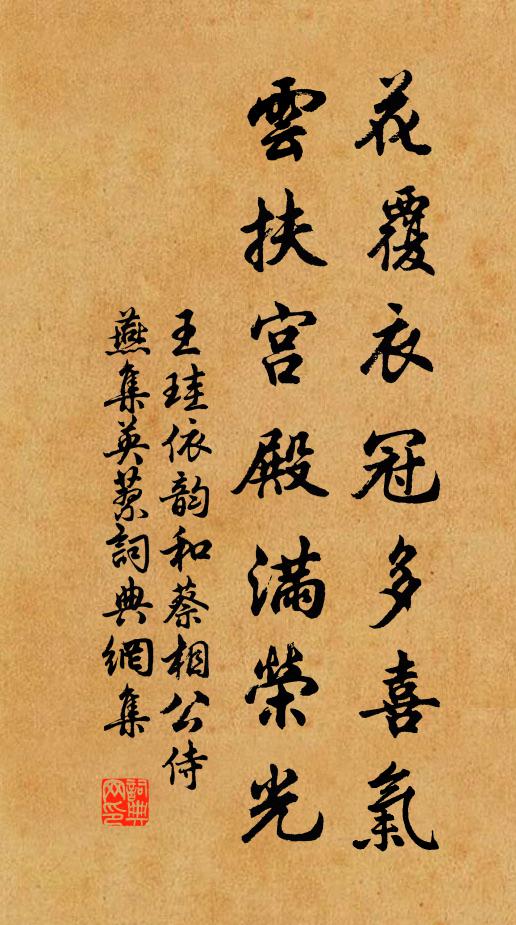 花覆衣冠多喜氣
雲扶宮殿滿榮光
王珪依韵和蔡相公侍
燕集英蔡詞典網集
詞典網印